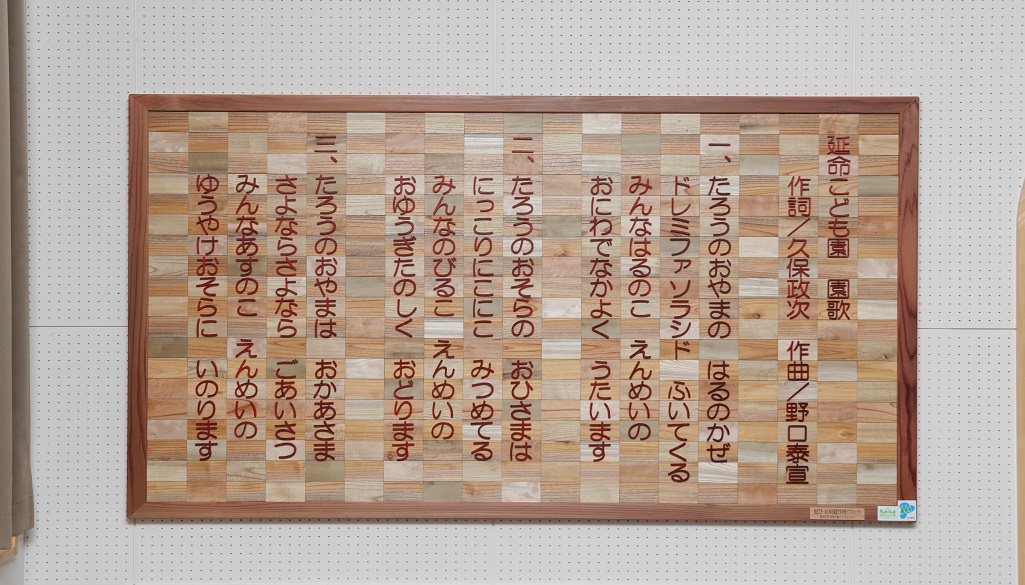 延命こども園　園歌
作詞／久保政次　作曲／野口泰宣
一、たろうのおやまの　はるのかぜ
ドレミファソラシド　ふいてくる
みんなはるのこ　えんめいの
おにわでなかよく　うたいます
二、たろうのおそらの　おひさまは
にっこりにこにこ　みつめてる
みんなのびるこ　えんめいの
おゆうぎたのしく　おどります
三、たろうのおやまは　おかあさま
さよならさよなら　ごあいさつ
みんなあすのこ　えんめいの
ゆうやけおそらに　いのります